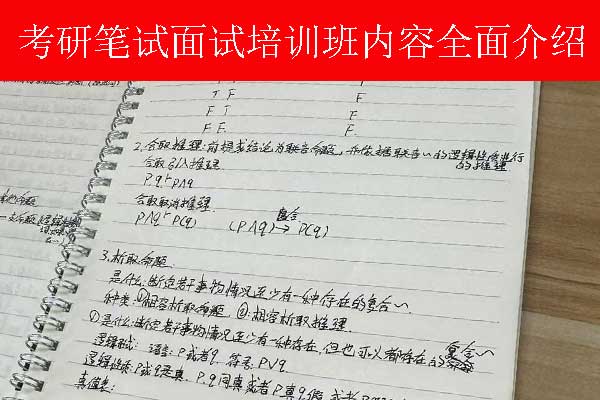 考研笔试面试培训班内容全面介绍
T F
F T F
F F. F
2.合取推理:前提或结论为联言命题,并依据联言~的逻辑性质进行的推理.
合取引入推理
P.q⊢P∧q
合取取消推理
P∧q⊢P(q) (P∧q)→P(q)
3.析取命题.
是什么:断定若干事物情况至少有一种存在的复合~
种类:①相容析取命题. ②相容析取推理.
①是什么:断定若干事物情况至少有一种存在,但也可以都存在的复合~
逻辑形式: 语言:P或者q. 符号:P∨q
逻辑性质:P或q是真. P.q同真或者P真q假
真值表: